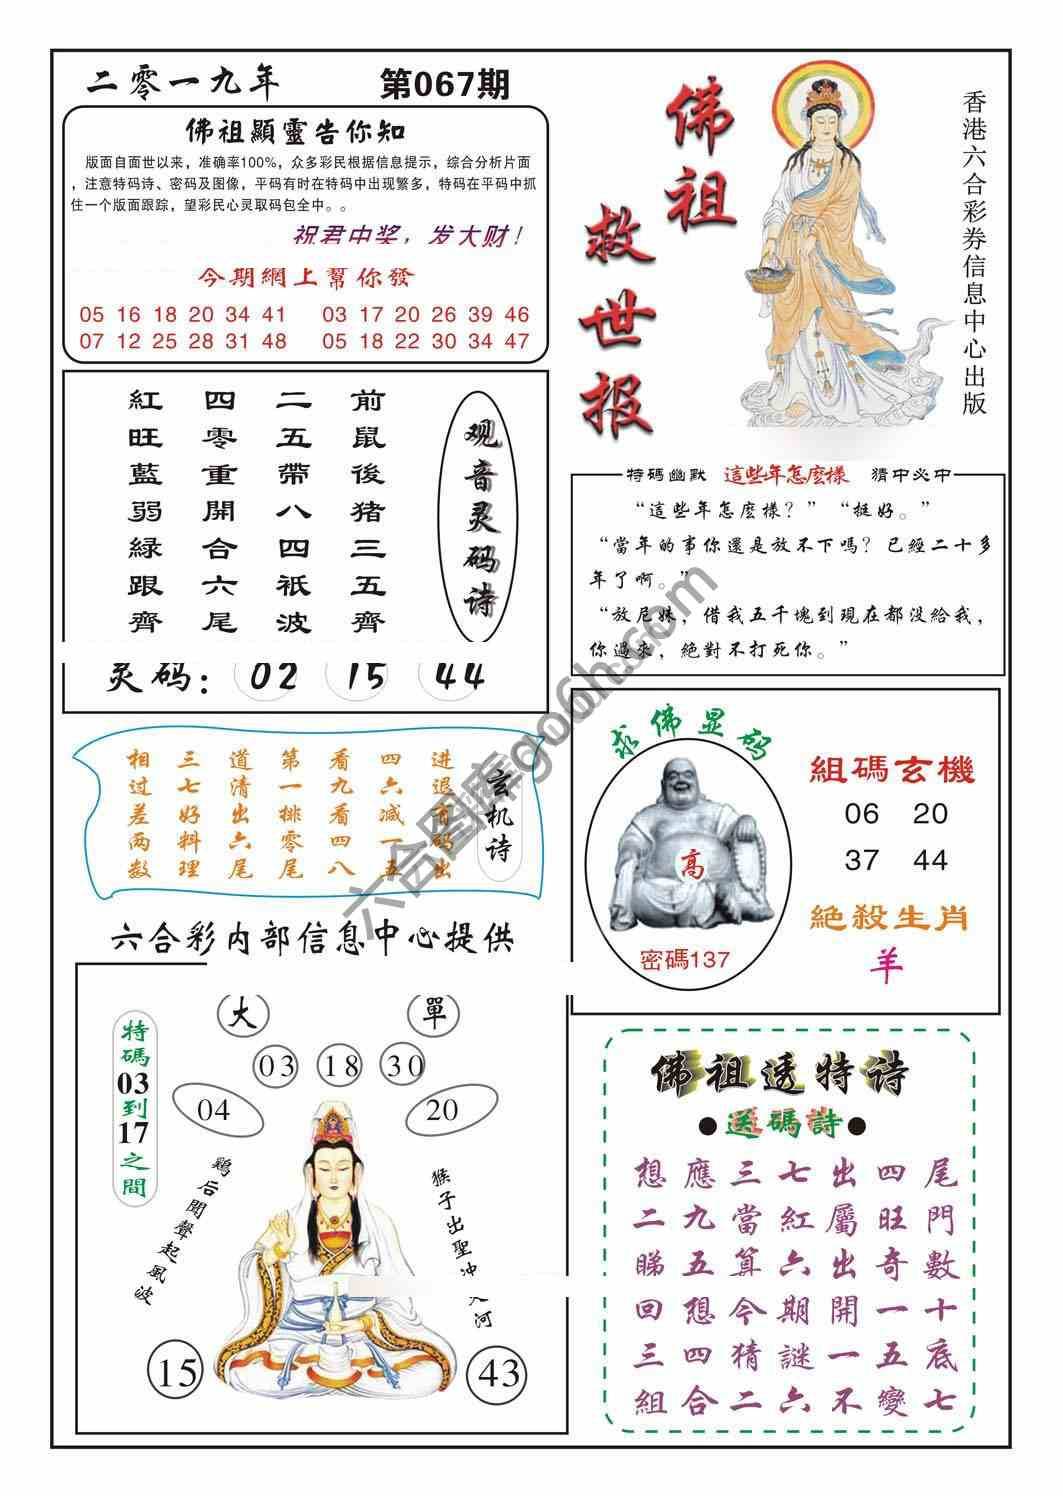 二零一九年
第067期
佛祖顯靈告你知
版面自面世以来，准确率100%，众多彩民根据信息提示，综合分析片面
，注意特码诗、密码及图像，平码有时在特码中出现繁多，特码在平码中抓
住一个版面跟踪，望彩民心灵取码包全中。。
祝君中奖，发大财！
今期網上幫你發
05 16 18 20 34 41
03 17 20 26 39 46
07 12 25 28 31 48
05 18 22 30 34 47
佛祖救世报
香港六合彩券信息中心出版
前鼠後猪三五齊
二五帶八四祇波
四零重開合六尾
紅旺藍弱緑跟齊
观音灵码诗
灵码：02 15 44
特碼幽默 這些年怎麽樣 猜中必中
“這些年怎麽樣？”“挺好。”
“當年的事你還是放不下嗎？已經二十多
年了啊。”
“放尼妹，借我五千塊到現在都没給我，
你過來，絕對不打死你。”
玄机诗
进退有码出
四六减一五
看九看四八
第一排零尾
道清出六尾
三七好料理
相过差两数
求佛显码
高
密碼137
組碼玄機
06 20
37 44
絕殺生肖
羊
六合彩内部信息中心提供
大
單
03 18 30
04
20
特碼03到17之間
鷄后聞聲起風波
猴子出聖冲
河
15
43
佛祖透特诗
●送碼詩●
想應三七出四尾
二九當紅屬旺門
睇五算六出奇數
回想今期開一十
三四猜謎一五底
組合二六不變七
六合图库go6h.com